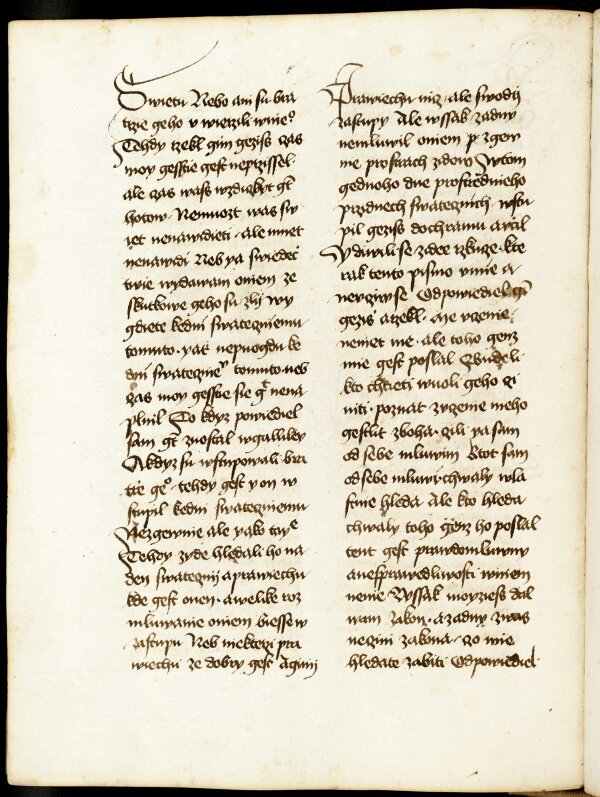 Swietu Nebo ani su bra
trzie geho v wierzili wnieᵒ
Tehdy rzekl gim gezijs czas
moy gesstie gest neprzissel
ale czas wass wzdickyt gt
hotow · Nemuozt was sw
iet nenawidieti · ale mnet
nenawidi Neb ya swiedec
twie wydawam oniem ze
skutkowe geho su zlij wy
gdiete kedni swateczniemu
tomuto · yat nepuogdu ke
dni swateczneᵐ tomuto · neb
czas moy gesstie sie gt nena
plnil To kdyz powiediel
sam gt zuostal wgalilegi
A kdyz su wstupowali bra
trzie geᵒ · tehdy gest y on w
stupil kedni swateczniemu
Nezgewnie ale yako tayᵉ
Tehdy zyde hledali ho na
den swatecznij aprawiechu
kde gest onen · awelike roz
mluwanie oniem biesse w
zastupu Neb niekterzi pra
wiechu ze dobry gest aginij
Prawiechu niz · ale swodij
zastupy Ale wssak zadny
nemluwil oniem p zgew
nie prostrach zidow Wtom
gednoho dne prostrzednieho
przidnech swatecznich · wstu
pil gezijs dochramu avczil
Y diwili se zidee rzkucze · kte
rak tento pismo vmie a
nevcziwse Odpowiediel gim
gezijs arzekl · Me vczenie
neniet me · ale toho genz
mie gest poslal Budeli
kto chtieti wuoli geho czi
niti · poznat zvczenie meho
gestlit zboha · czili ya sam
od sebe mluwim Ktot sam
odsebe mluwi · chwaly wla
stnie hleda Ale kto hleda
chwaly toho genz ho poslal
tent gest prawdomluwny
anesprawedlnosti wniem
nenie Wssak moyziess dal
wam zakon · a zadny zwas
neczini zakona · czo mie
hledate zabiti Odpowiediel